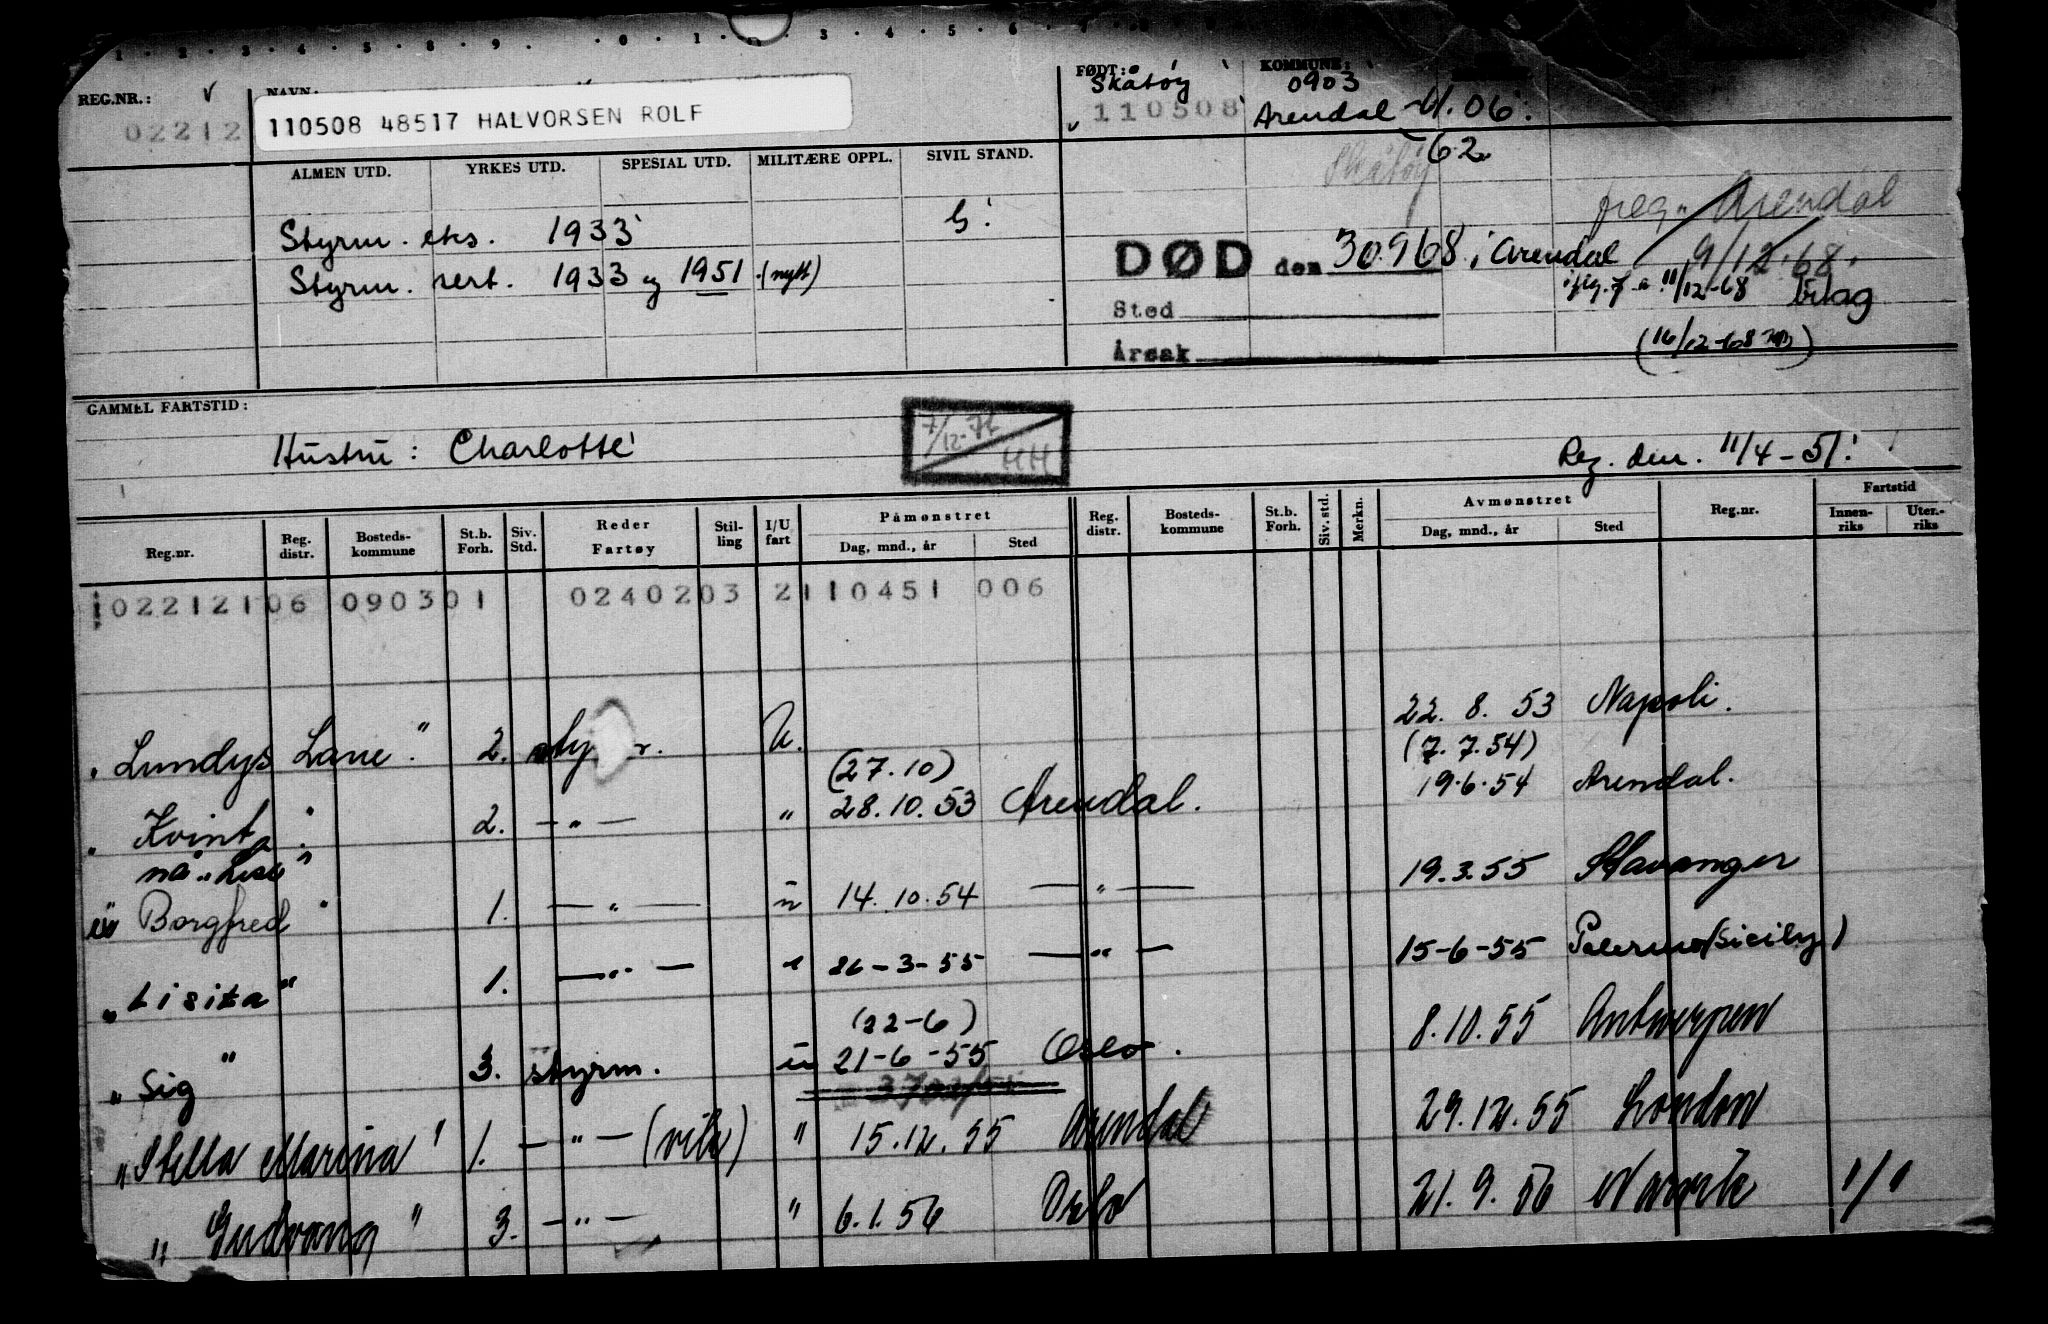 REG.NR.: NAVN: FØDT: Skåtøy KOMMUNE: 0903
02212 110508 48517 HALVORSEN ROLF 110508 Arendal 4.06.
62
ALMEN UTD. YRKES UTD. SPESIAL UTD. MILITÆRE OPPL. SIVIL STAND. Skåtøy
freg. Arendal
Styrm. eks. 1933 G.
DØD den 30968 i Arendal 9/12.68.
Styrm. sert. 1933 og 1951 (nytt)
11/12-68 bilag
Sted
(16/12-68)
Årsak
GAMMEL FARTSTID:
7/12-71 HH
Hustru: Charlotte Reg. den. 11/4-51.
Reg.nr. Reg. distr. Bosteds-kommune St.b. Forh. Siv. Std. Reder Fartøy Stil-ling I/U fart Påmønstret Dag, mnd., år Sted Reg. distr. Bosteds-kommune St.b. Forh. Siv. std. Merkn. Avmønstret Dag, mnd., år Sted Reg.nr. Fartstid Innen-riks Uten.-riks
102212106 090301 0240203 2110451 006
22. 8. 53 Napoli.
"Lundys Lane". 2. U.
(27.10) (7.7.54)
"Kvint". 2. — " — " 28.10.53 Arendal. 19.6.54 Arendal.
nå "Lise"
"Borgfred" 1. — " — u 14.10.54 — " — 19.3.55 Stavanger
"Lisita" 1. — " — " 26-3-55 — " — 15-6-55 Palermo (Sicily)
(22-6)
"Sig" 3. styrm. u 21-6-55 Oslo. 8.10.55 Antwerpen
"Stella Marina" 1. — " — (vik) " 15.12.55 Arendal 29.12.55 London
"Gudvang" 3. — " — " 6.1.56 Oslo 21.9.56 Narvik 1/1